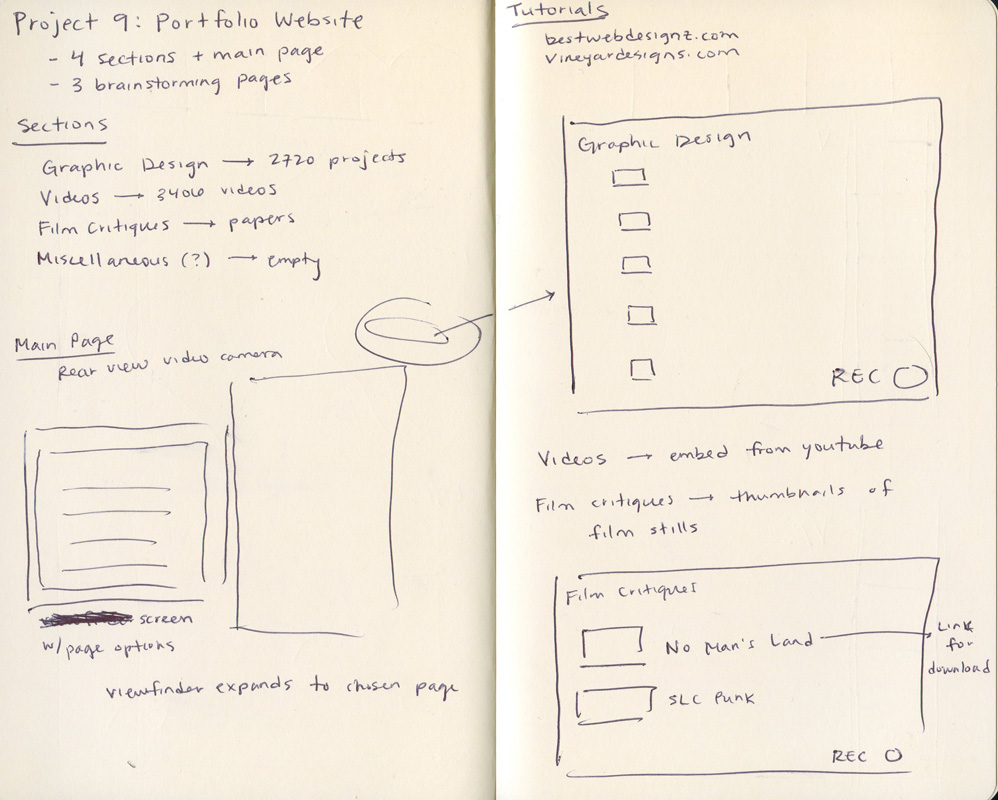 Project 9: Portfolio Website
- 4 sections + main page
- 3 brainstorming pages
Sections
Graphic Design → 2720 projects
Videos → videos
Film Critiques → papers
Miscellaneous (?) → empty
Main Page
Rear view video camera
screen
w/page options
viewfinder expands to chosen page
Tutorials
bestwebdesignz.com
vineyardesigns.com
Graphic Design
REC
Videos → embed from youtube
Film critiques → thumbnails of
film stills
Film Critiques
No Man's Land
Link
for
download
SLC Punk
REC